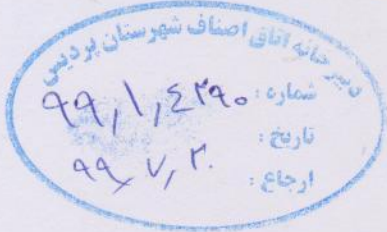 دبیرخانه اتاق اصناف شهرستان پردیس
شماره : ۹۹,۱,۴۲۹۰
تاریخ : ۹۹,۷,۲۰
ارجاع :